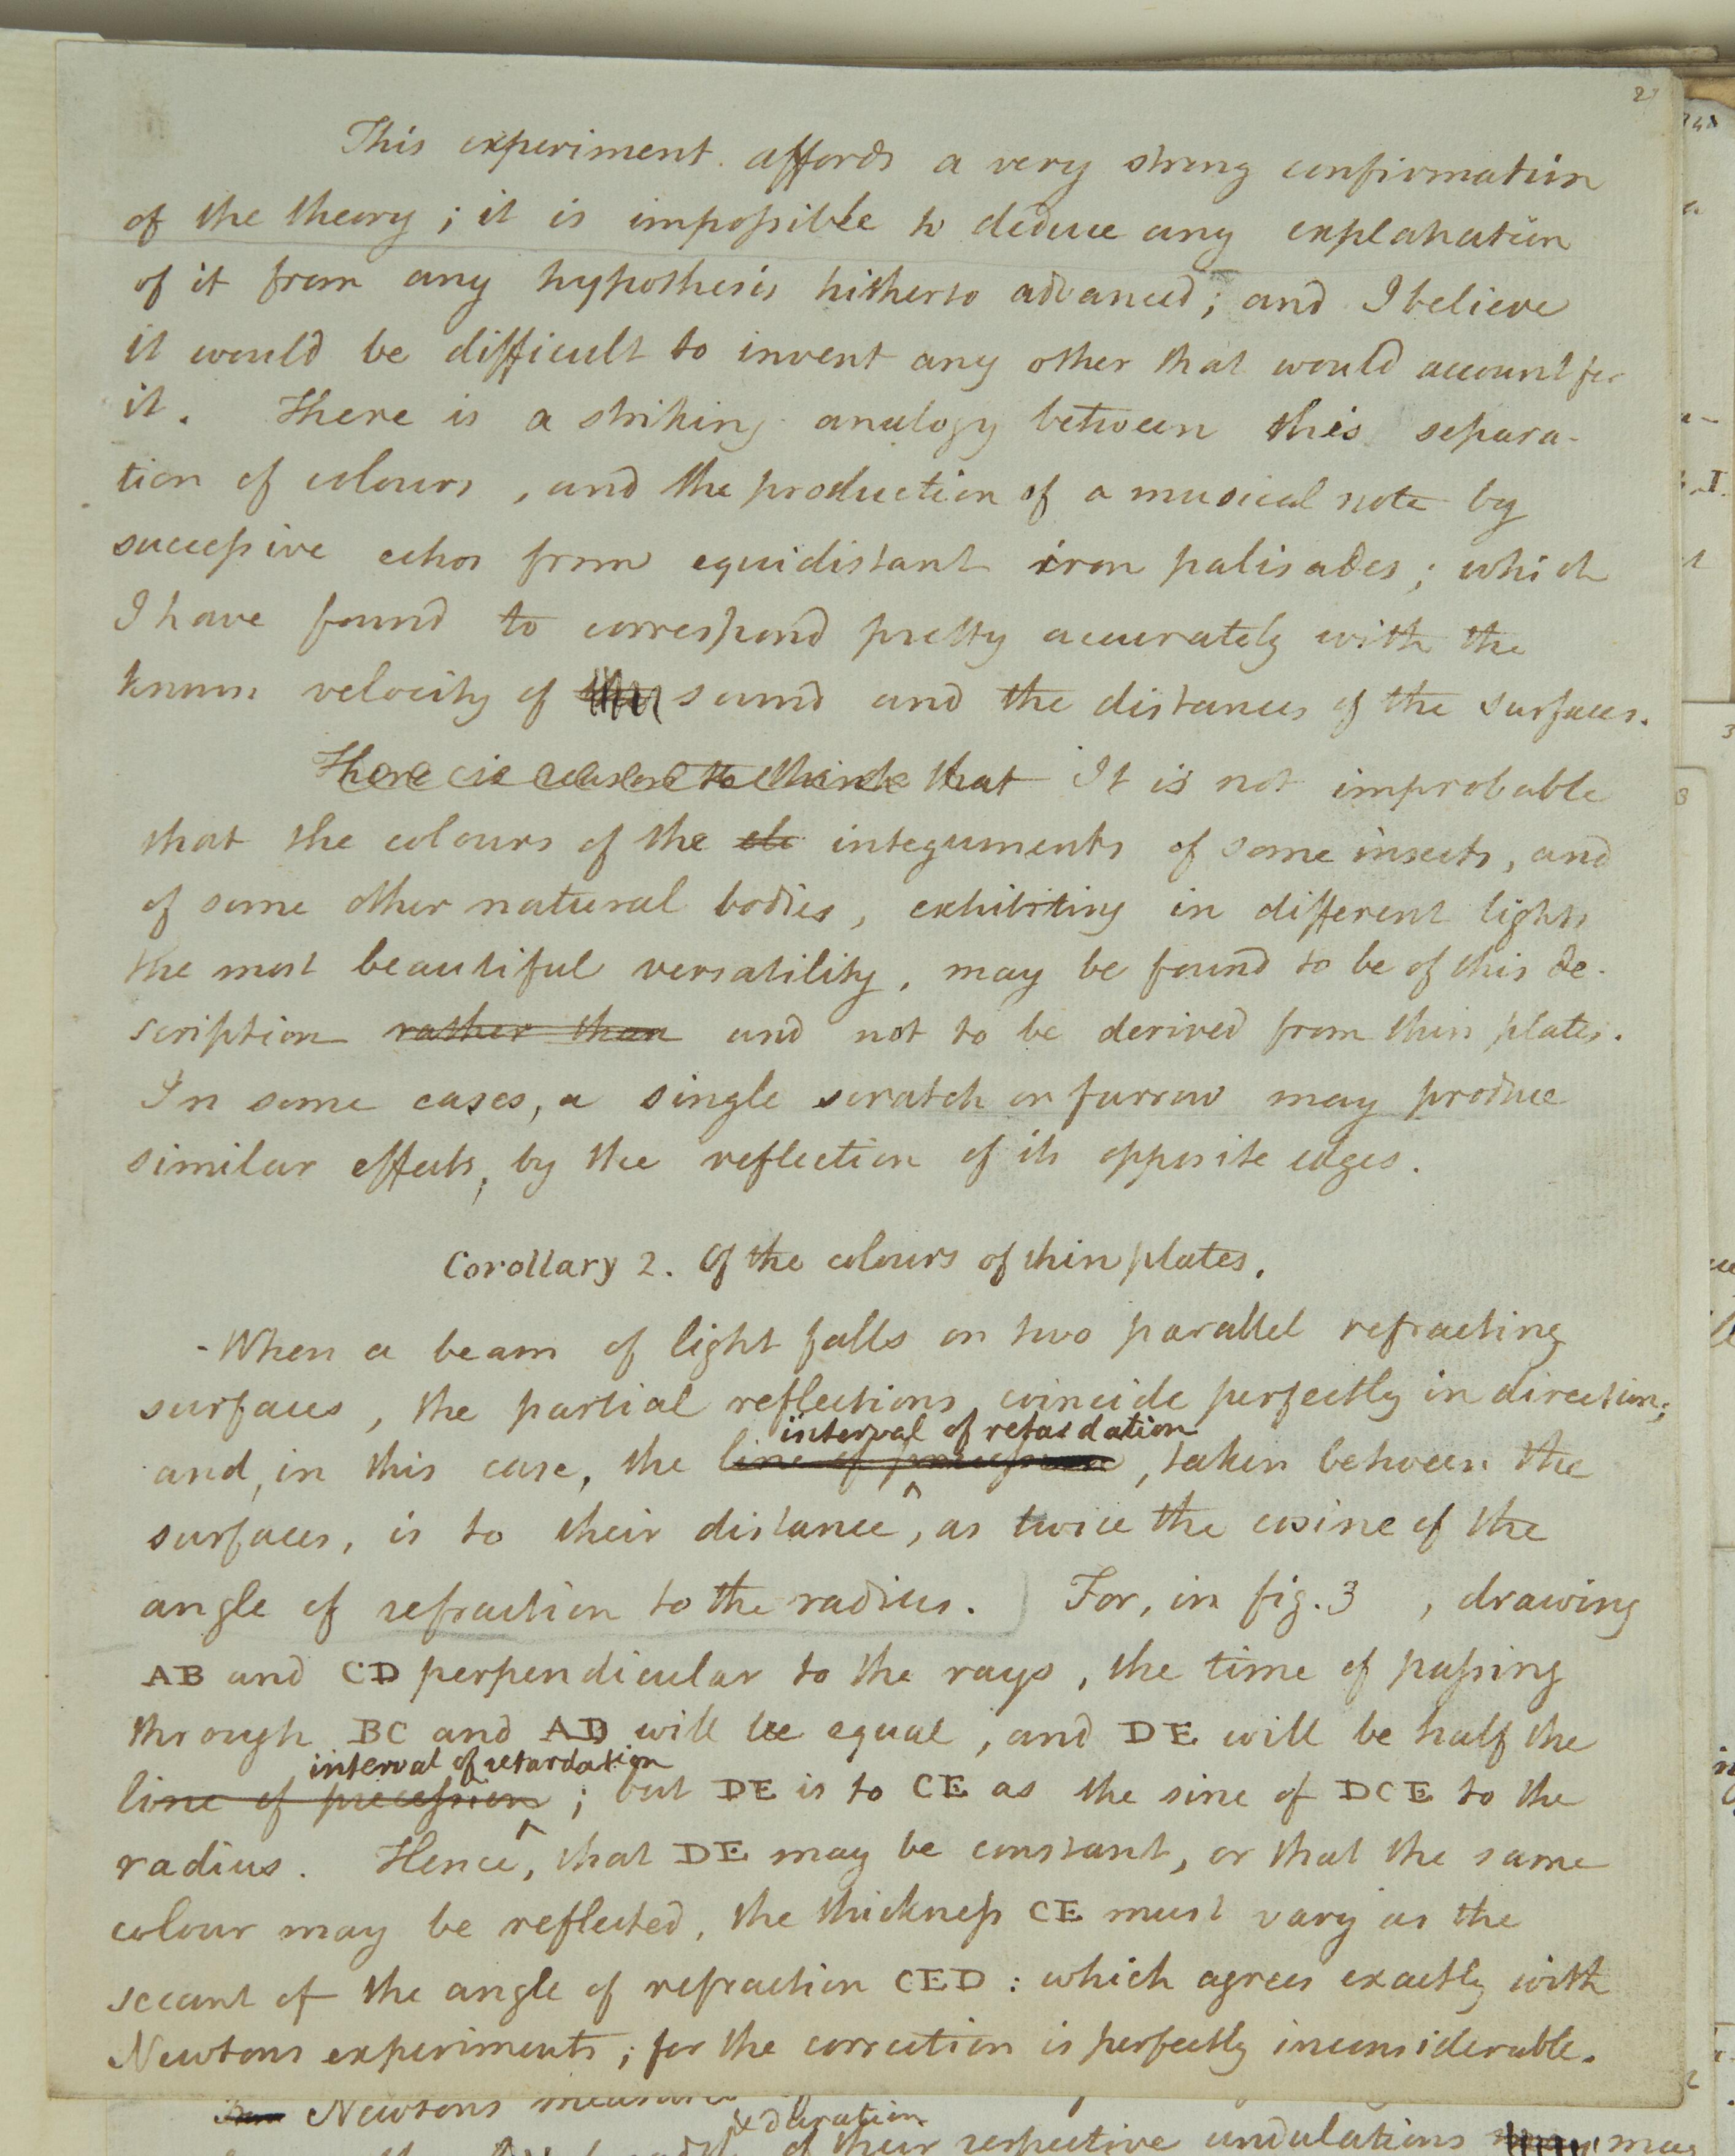 2
This experiment affords a very strong confirmation
of the theory; it is impossible to deduce any explanation
of it from any hypothesis hitherto advanced; and I believe
it would be difficult to invent any other that would account for
it. There is a striking analogy between this separa-
tion of colours, and the production of a musical note by
successive echos from equidistant iron palisades; which
I have found to correspond pretty accurately with the
known velocity of sound and the distances of the surfaces.
There is reason to think that It is not improbable
that the colours of the integuments of some insects, and
of some other natural bodies, exhibiting in different lights
the most beautiful versatility, may be found to be of this de-
scription rather than and not to be derived from thin plates.
In some cases, a single scratch or furrow may produce
similar effects, by the reflection of its opposite edges.
Corollary 2. Of the colours of thin plates.
When a beam of light falls on two parallel refracting
surfaces, the partial reflections coincide perfectly in direction;
interval of retardation
and, in this case, the line of precession, taken between the
surfaces, is to their distance, as twice the cosine of the
angle of refraction to the radius. For, in fig. 3 , drawing
AB and CD perpendicular to the rays, the time of passing
through BC and AD will be equal, and DE will be half the
interval of retardation
line of precession; but DE is to CE as the sine of DCE to the
radius. Hence, that DE may be constant, or that the same
colour may be reflected, the thickness CE must vary as the
secant of the angle of refraction CED: which agrees exactly with
Newtons experiments; for the correction is perfectly inconsiderable.
Newtons measures
& duration
of their respective undulations may